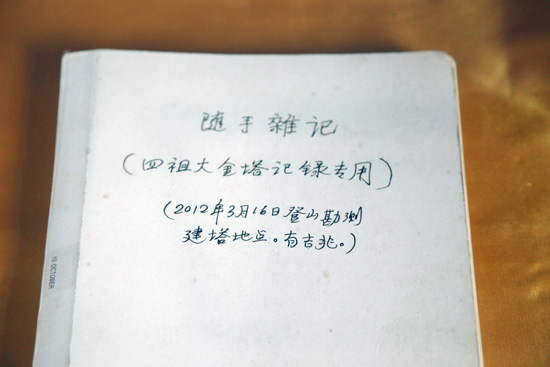 随手雜记
(四祖大金塔记录专用)
(2012年3月16日登山勘测
建塔地点。有吉兆。)
10 OCTOBER